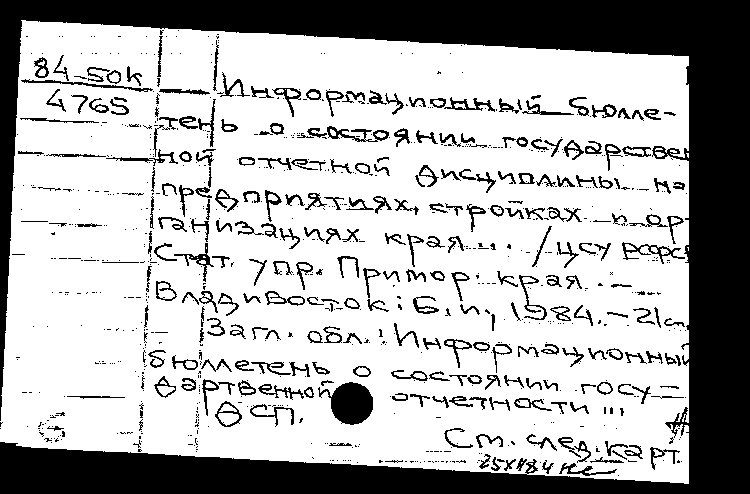 84-50к
4765
Информационный бюлле-
тень о состоянии государствен
ной отчетной дисциплины на
предприятиях, стройках и ор-
ганизациях края... /ЦСУ РСФСР
Стат. упр. Примор. края. —
Владивосток: Б. и., 1984. — 21с.
Загл. обл.: Информационный
бюллетень о состоянии госу-
дартвенной отчетности...
ДСП.
См. след. карт.